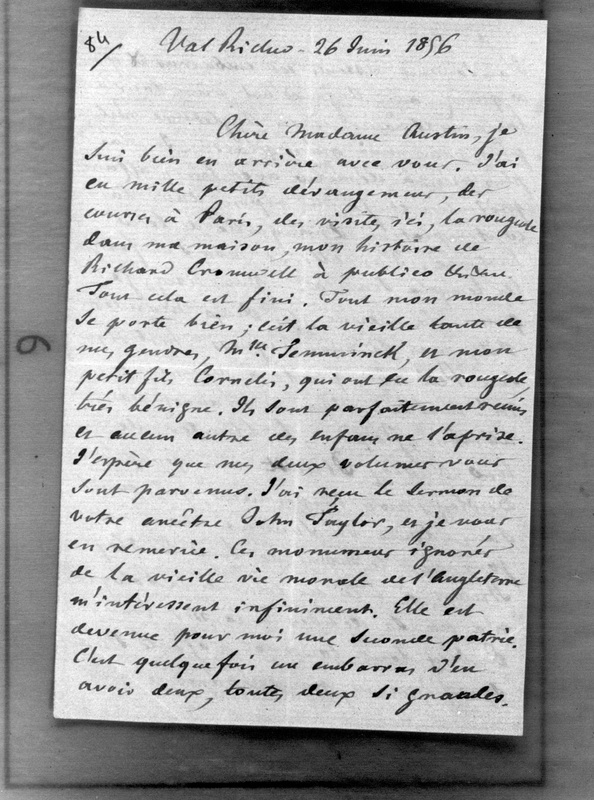 84/
Val Richer - 26 Juin 1856
Chère Madame Austin, je
suis bien en arrière avec vous. J'ai
eu mille petits dérangemens, des
courses à Paris, des visites ici, la rougeole
dans ma maison, mon histoire de
Richard Cromwell à publier
Tout cela est fini. Tout mon monde
se porte bien; c'est la vieille tante de
mes gendres, Mlle Temminck, et mon
petit fils Cornelis, qui ont eu la rougeole,
très bénigne. Ils sont parfaitement remis
et aucun autre des enfans ne l'a prise.
J'espère que mes deux volumes vous
sont parvenus. J'ai reçu le sermon de
votre ancêtre John Taylor, et je vous
en remercie. Ces monumens ignorés
de la vieille vie morale de l'Angleterre
m'intéressent infiniment. Elle est
devenue pour moi une seconde patrie.
C'est quelquefois un embarras d'en
avoir deux, toutes deux si grandes.
6